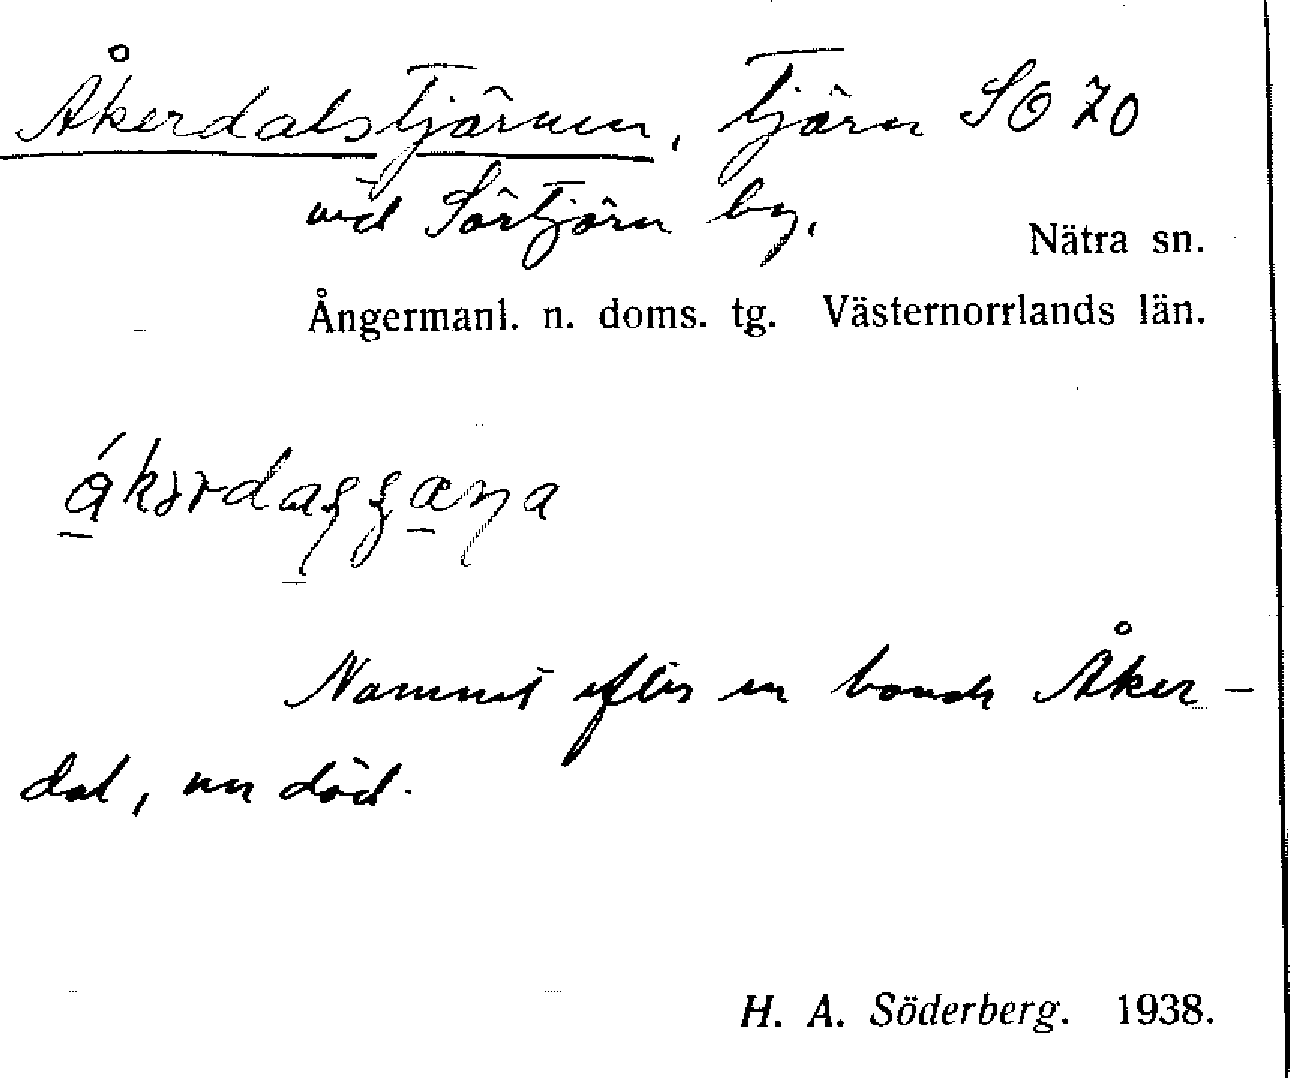 Åkerdalstjärnen, tjärn SO 20
vid Sörtjärn by.
Nätra sn.
Ångermanl. n. doms. tg. Västernorrlands län.
Namnet efter en bonde Åker-
dal, nu död.
H. A. Söderberg. 1938.